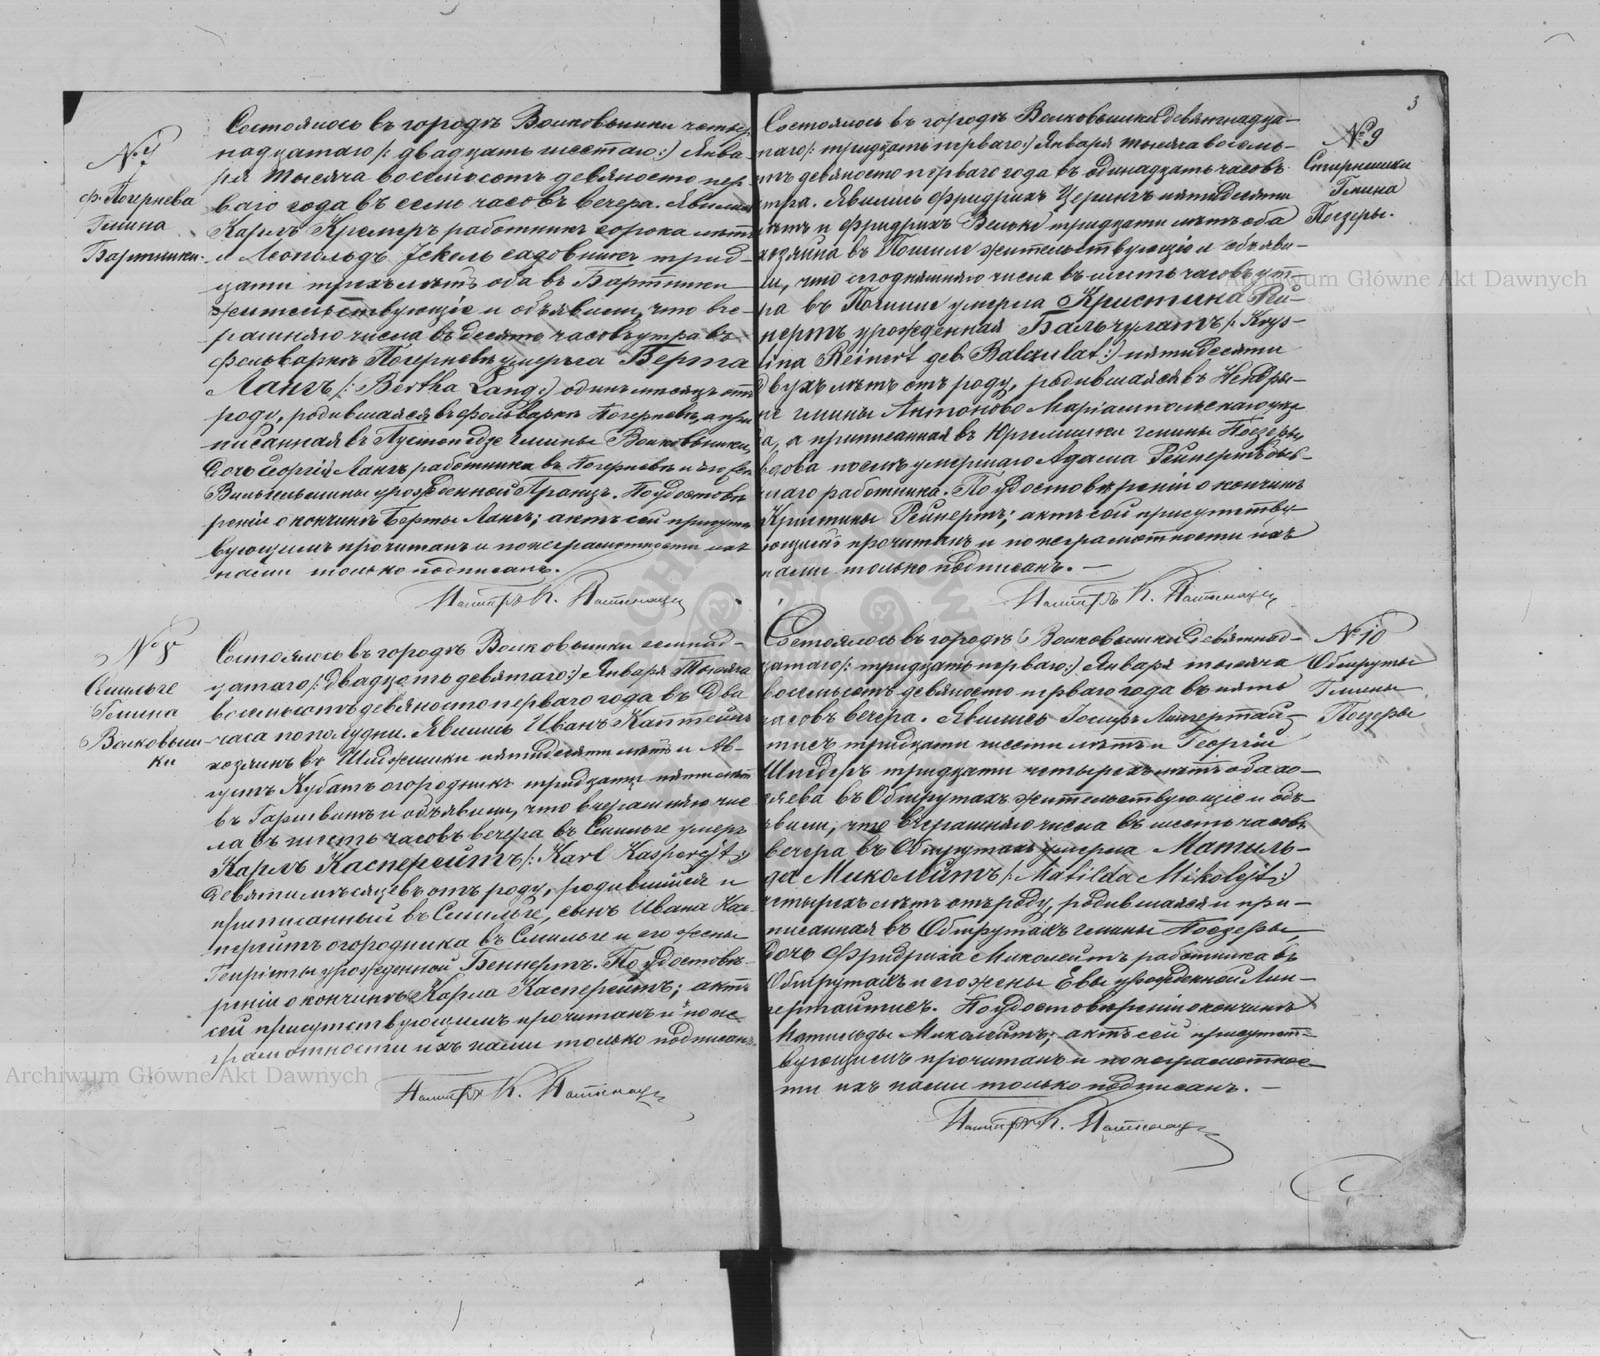 № 7
ф. Погернева
Гмина
Бартники.
Состоялось въ городѣ Волковышки четыр-
надцатаго /: двадцать шестаго :/ Янва-
ря тысяча восемьсотъ девяносто пер-
ваго года въ семь часовъ вечера. Явились
Карлъ Кремеръ работникъ сорока лѣтъ
и Леопольдъ Іекель садовникъ трид-
цати трехъ лѣтъ оба въ Бартники
жительствующіе и объявили, что вче-
рашняго числа въ десять часовъ утра въ
фольваркѣ Погерневѣ умерла Берта
Лангъ /: Bertha Lang :/ одинъ мѣсяцъ отъ
роду, родившаяся въ фольваркѣ Погерневѣ, а при-
писанная въ гмины Волковышки,
дочь Георгія Лангъ работника въ Погерневѣ и его жены
Вильгельмины урожденной Транцъ. По удостовѣ-
реніи о кончинѣ Берты Лангъ; актъ сей присутст-
вующимъ прочитанъ и по неграмотности ихъ
нами только подписанъ.
Пасторъ К.
№ 8
Смильге
Гмина
Волковыш-
ки
Состоялось въ городѣ Волковышки семнад-
цатаго /: двадцать девятаго :/ Января тысяча
восемьсотъ девяносто перваго года въ два
часа пополудни. Явились Иванъ Каптейнъ
хозяинъ въ пятидесяти лѣтъ и Ав-
густъ Кубатъ огородникъ тридцати пяти лѣтъ
въ и объявили, что вчерашняго чис-
ла въ шесть часовъ вечера въ Смильге умеръ
Карлъ Касперейтъ /: Karl Kasperejt :/
девяти мѣсяцевъ отъ роду, родившійся и
приписанный въ Смильге, сынъ Ивана Кас-
перейтъ огородника въ Смильге и его жены
Генріеты урожденной Беннертъ. По удостовѣ-
реніи о кончинѣ Карла Касперейтъ; актъ
сей присутствующимъ прочитанъ и по не-
грамотности ихъ нами только подписанъ.
Пасторъ К.
3
№ 9
Стирнишки
Гмина
Поезеры.
Состоялось въ городѣ Волковышки девятнадца-
таго /: тридцать перваго :/ Января тысяча восемь-
сотъ девяносто перваго года въ одинадцать часовъ
утра. Явились Фридрихъ Церингъ пятидесяти
лѣтъ и Фридрихъ Велькъ тридцати лѣтъ оба
хозяйна въ Пошиле жительствующіе и объяви-
ли, что сегодняшняго числа въ пять часовъ ут-
ра въ Пошиле умерла Кристина Рей-
нертъ урожденная Бальчулатъ /: Krys-
tina Reinert geb. Balculat :/ пятидесяти
двухъ лѣтъ отъ роду, родившаяся въ
гмины Антоново Маріампольскаго уѣз-
да, а приписанная въ гмины Поезеры,
вдова послѣ умершаго Адама Рейнертъ быв-
шаго работника. По удостовѣреніи о кончинѣ
Кристины Рейнертъ; актъ сей присутству-
ющимъ прочитанъ и по неграмотности ихъ
нами только подписанъ. —
Пасторъ К.
№ 10
Обшруты
Гмины
Поезеры
Состоялось въ городѣ Волковышки девятнад-
цатаго /: тридцать перваго :/ Января тысяча
восемьсотъ девяносто перваго года въ пять
часовъ вечера. Явились Іосифъ Лингертай-
тисъ тридцати шести лѣтъ и Георгій
Шнедеръ тридцати четырехъ лѣтъ оба хо-
зяева въ Обшрутахъ жительствующіе и объ-
явили, что вчерашняго числа въ шесть часовъ
вечера въ Обшрутахъ умерла Матиль-
да Миколейтъ /: Matilda Mikolejt :/
четырехъ лѣтъ отъ роду, родившаяся и при-
писанная въ Обшрутахъ гмины Поезеры,
дочь Фридриха Миколейтъ работника въ
Обшрутахъ и его жены Евы урожденной Лин-
гертайтисъ. По удостовѣреніи о кончинѣ
Матильды Миколейтъ; актъ сей присутст-
вующимъ прочитанъ и по неграмотнос-
ти ихъ нами только подписанъ. —
Пасторъ К.
Archiwum Główne Akt Dawnych
Archiwum Główne Akt Dawnych